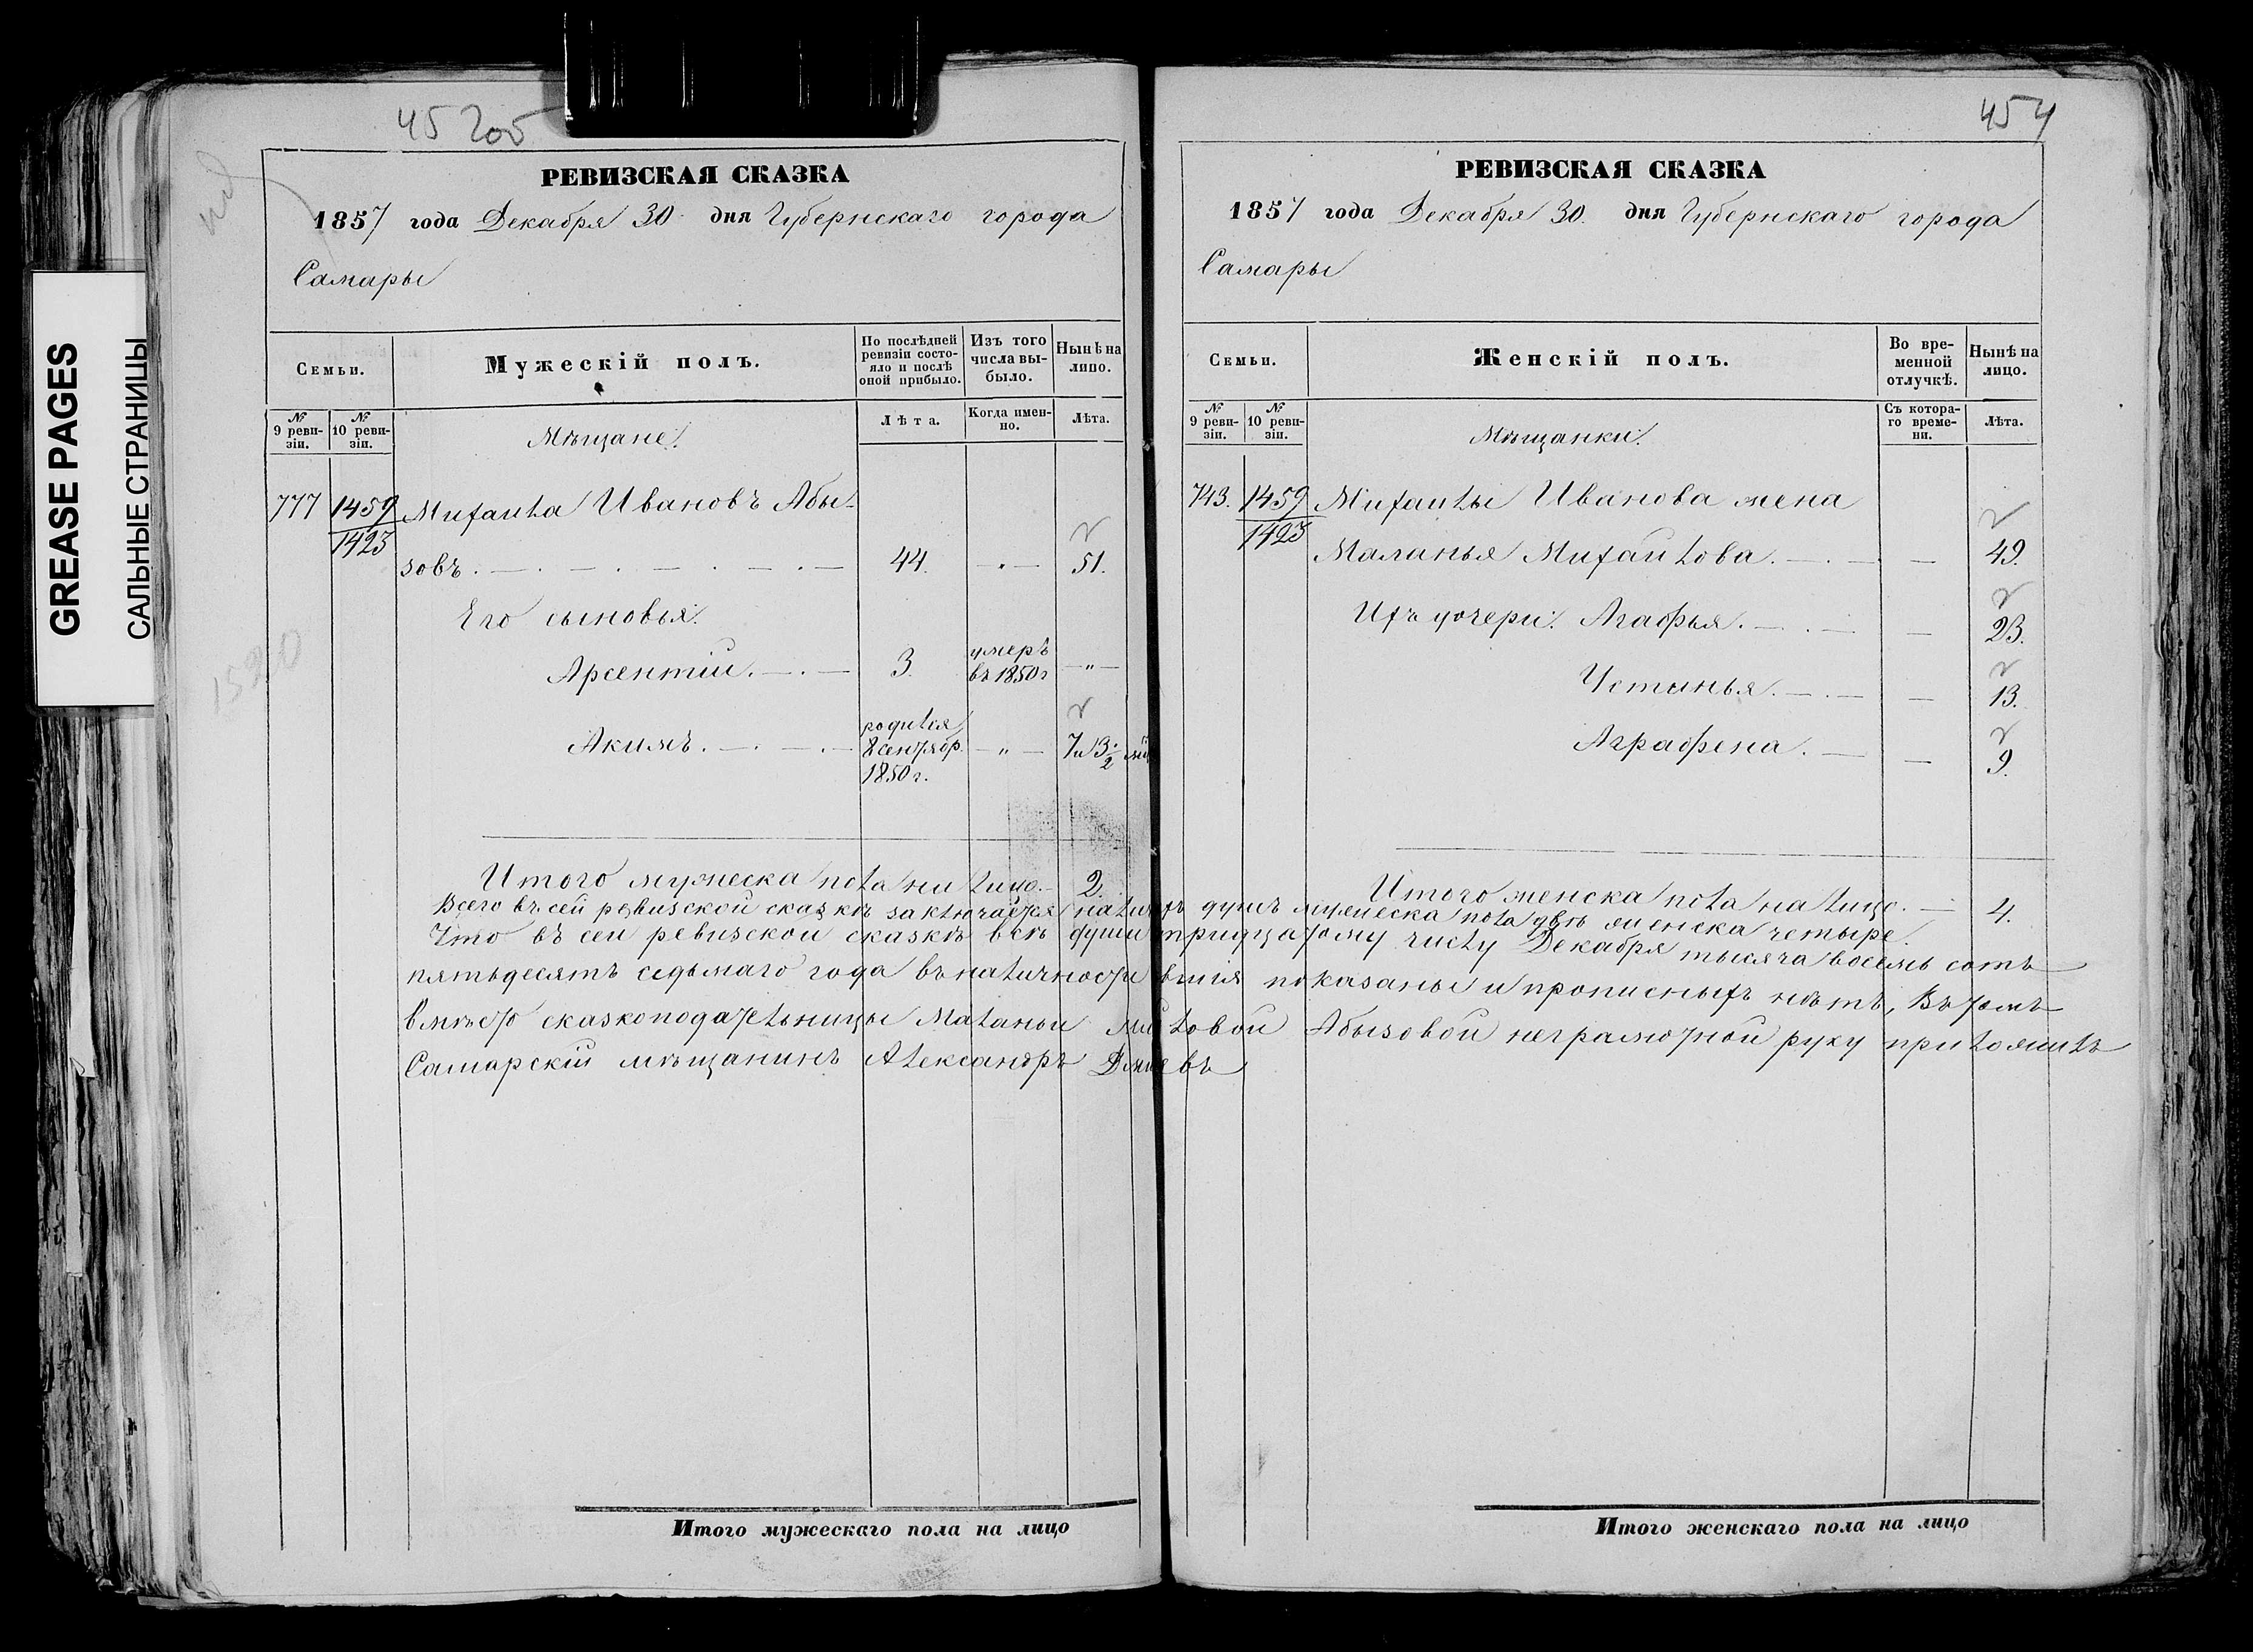 GREASE PAGES
САЛЬНЫЕ СТРАНИЦЫ
РЕВИЗСКАЯ СКАЗКА
1857 года Декабря 30 дня Губернскаго города
Самары
Семьи.
Мужескій полъ.
По послѣдней ревизіи состояло и послѣ оной прибыло.
Изъ того числа выбыло.
Нынѣ на лицо.
№ 9 ревизіи.
№ 10 ревизіи.
Мѣщане.
Лѣта.
Когда именно.
Лѣта.
777 1459 Михайла Ивановъ Абы-
1423
зовъ. 44. 51.
Его сыновья:
Арсентій. 3. умеръ въ 1850 г — " —
Акимъ. родился 8 сентябр. 1850 г. — " — 7 и 3 ½ мц
Итого мужеска пола на лицо. 2.
Итого мужескаго пола на лицо
454
РЕВИЗСКАЯ СКАЗКА
1857 года Декабря 30. дня Губернскаго города
Самары
Семьи.
Женскій полъ.
Во временной отлучкѣ.
Нынѣ на лицо.
№ 9 ревизіи.
№ 10 ревизіи.
Мѣщанки.
Съ котораго времени.
Лѣта.
743. 1459 Михайлы Иванова жена
1423
Маланья Михайлова. — 49.
Ихъ дочери: Агафья. — 23.
Устинья. — 13.
Аграфена. — 9.
Итого женска пола на лицо. — 4.
Всего въ сей ревизской сказкѣ заключается наличныхъ душъ мужеска пола двѣ женска четыре.
Что въ сей ревизской сказкѣ всѣ души тридцатому числу Декабря тысяча восемь сотъ
пятьдесятъ седьмаго года въ наличности показаны и прописныхъ нѣтъ, Въ томъ
вмѣсто сказкоподательницы Маланьи Абызовой неграмотной руку приложилъ
Самарскій мѣщанинъ Александръ
Итого женскаго пола на лицо